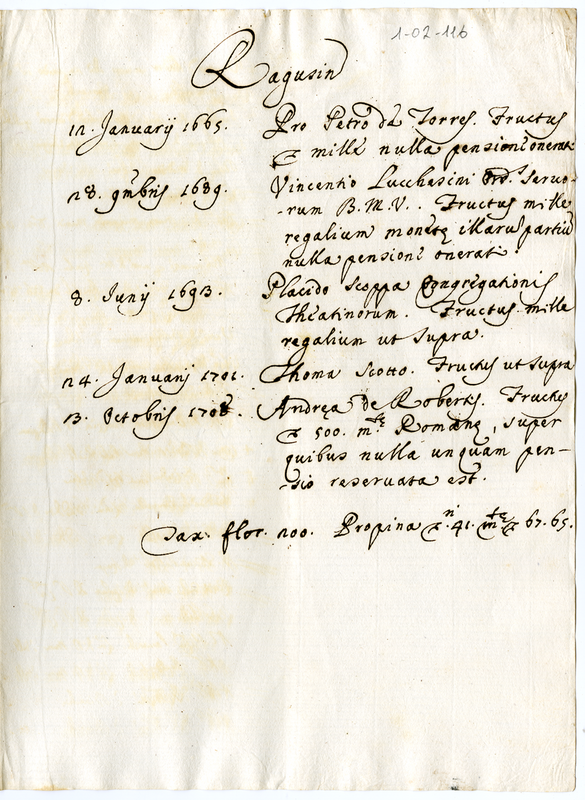 1-02-116
Ragusin
12. Januarij 1665. Pro Petro de Torres. Fructus
mille nulla pensione onerat
28. 9mbris 1689. Vincentio Lucchesini Ord. Servo-
-rum B. M. V. . Fructus mille
regalium monetę illaru partiu
nulla pensione onerati
8. Junij 1693. Placido Scoppa Congregationis
Theatinorum. Fructus mille
regalium ut supra.
24. Januarij 1701. Thoma Scotto. Fructus ut supra
13. Octobris Andrea de Robertis. Fructus
500. mtę Romanę, super
quibus nulla unquam pen-
-sio reservata est.
Tax. flor. 200. Propina 41. mtę 67. 65.